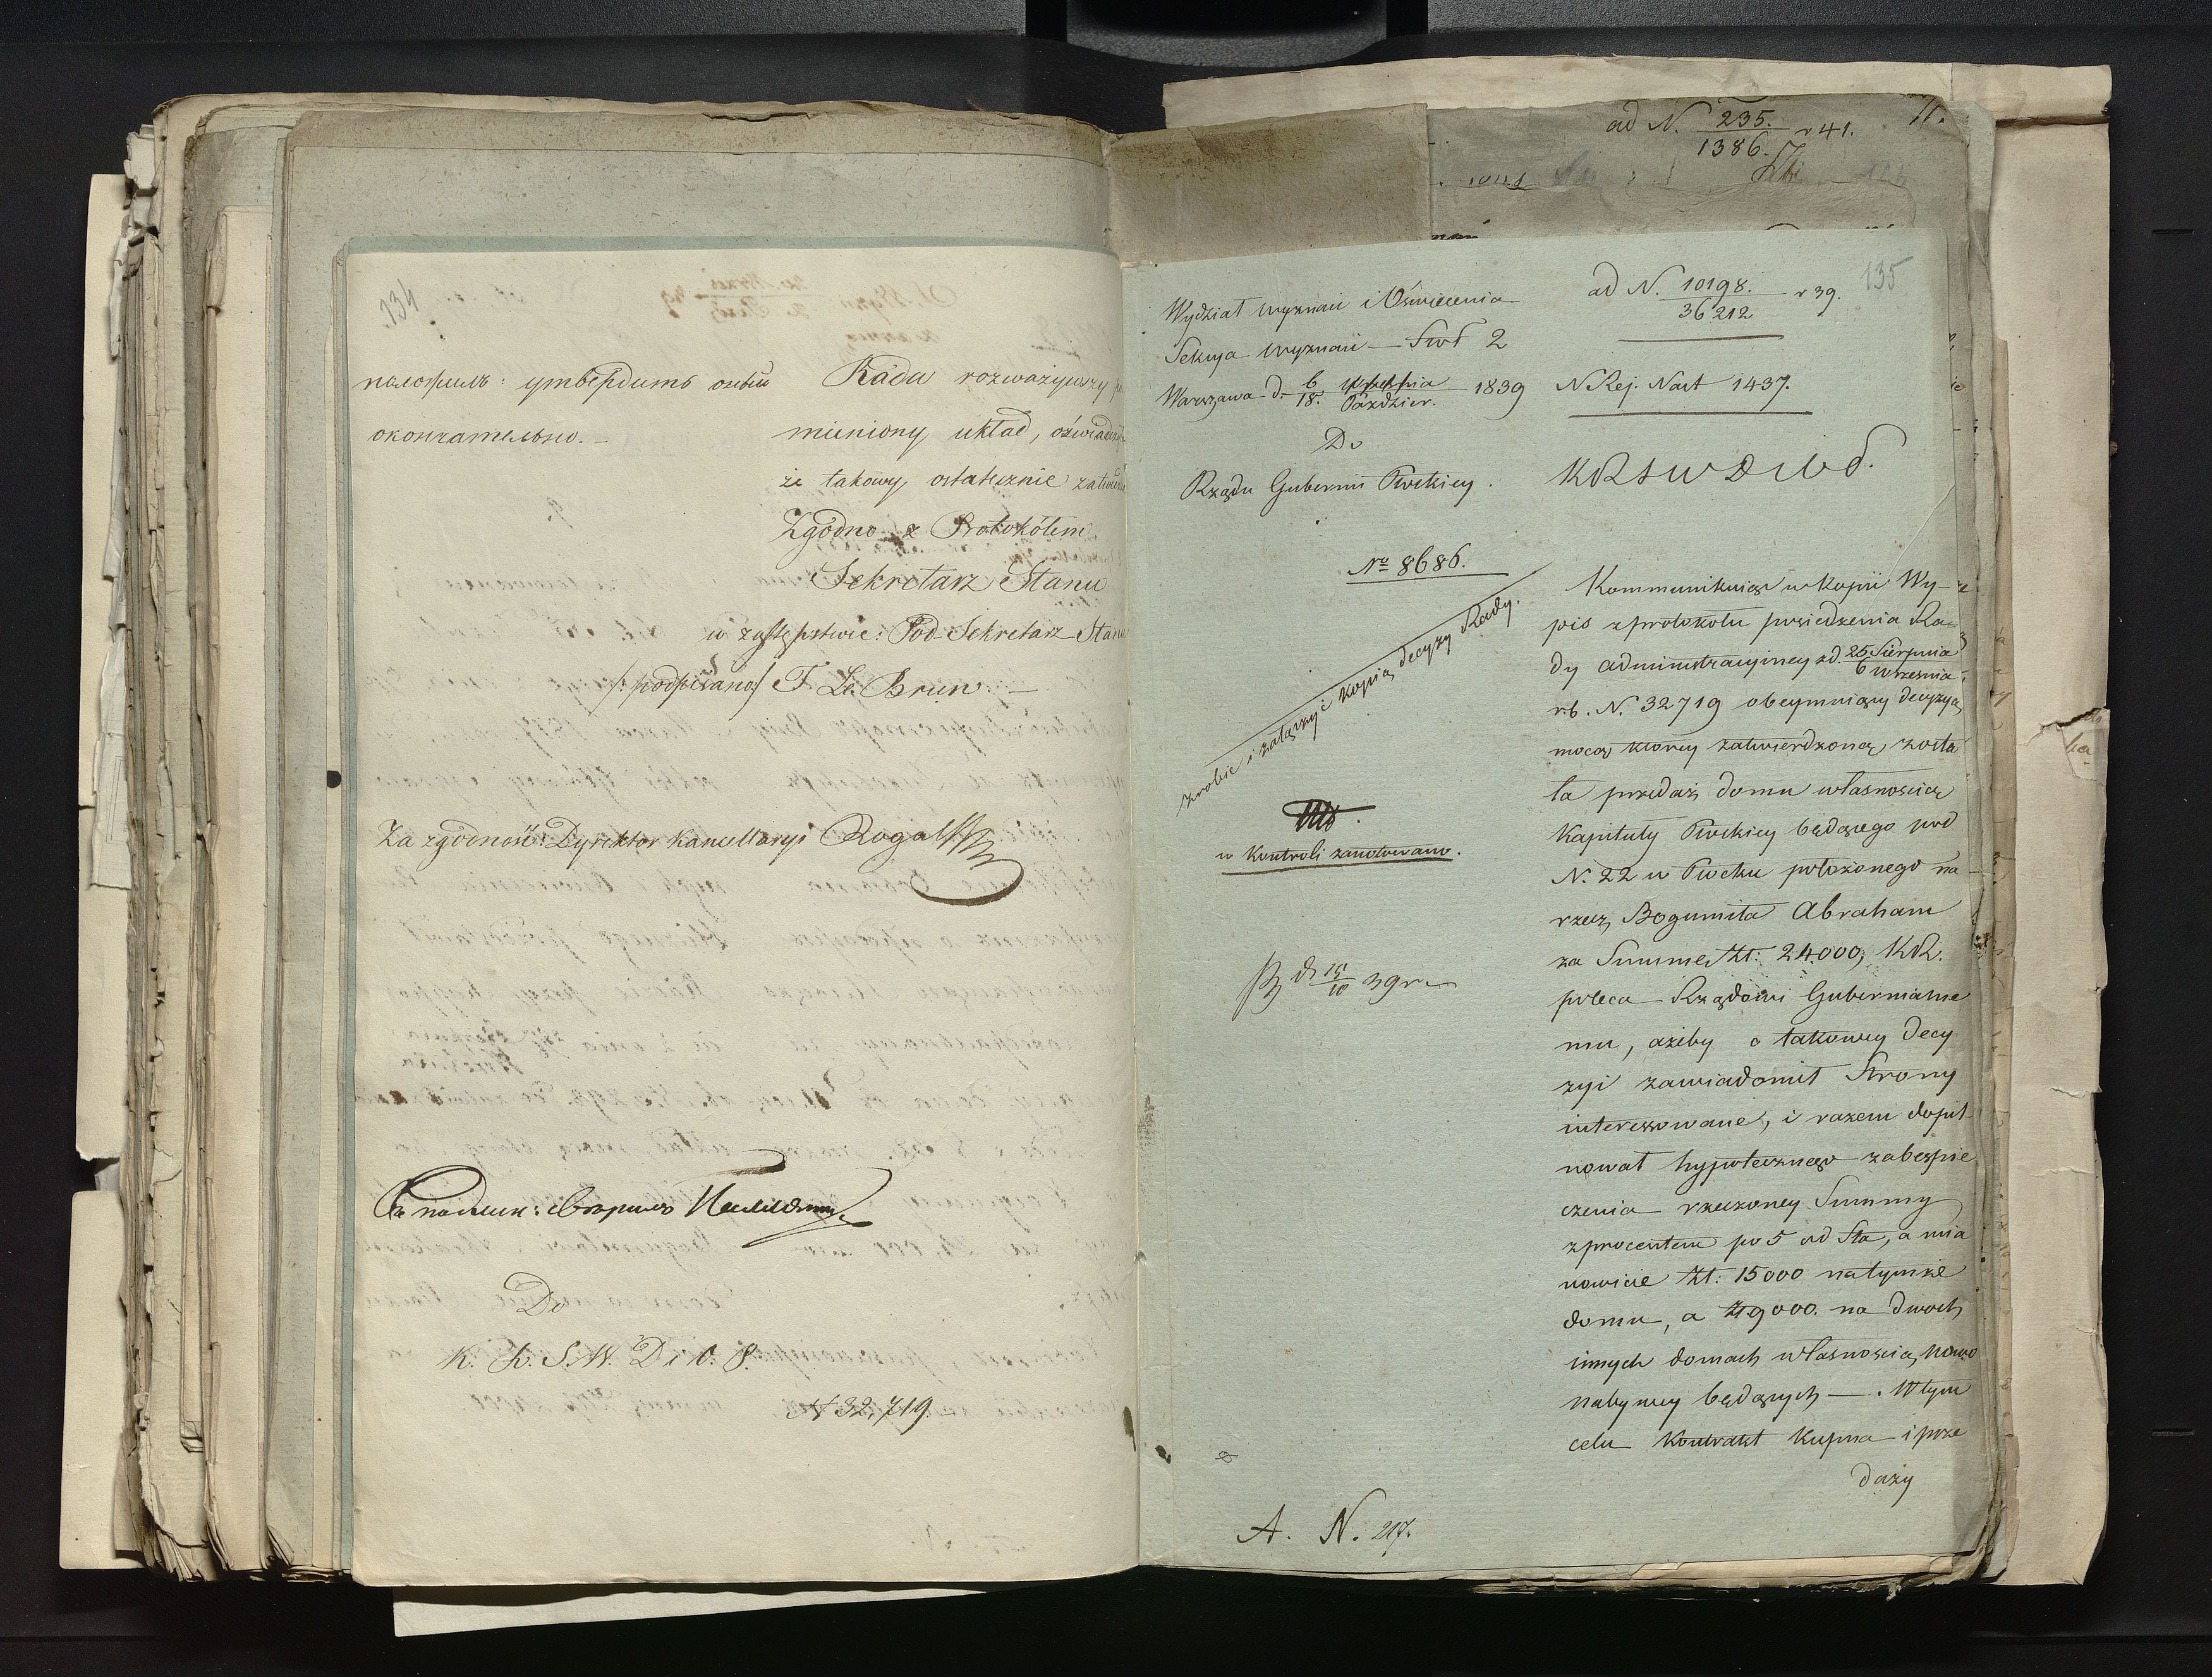 134
положилъ: утвердить оный
окончательно. —
Rada rozważywszy
mieniony układ, oświad
że takowy ostatecznie zatwi
Zgodno z Protokółem.
Sekretarz Stanu
w zastępstwie: Pod-Sekretarz Stanu
/:podpisano/ T Le Brun. —
Za zgodność: Dyrektor Kancellaryi
Do
K. R. S. W. D i O. P.
N 32,719
ad N. 235./1386. r 41.
11.
135
Wydział Wyznań i Oświecenia
Sekcya Wyznań — Swt 2
Warszawa d. 6/18. Września/Październ. 1839
Do
Rządu Gubernii Płockiey.
No 8686.
zrobić i załączyć kopią decyzyi Rady.
w Kontroli zanotowano.
15/10 39 r
A. N. 217.
ad N. 10198./36212 r 39.
N Rej. Nast 1437.
KRSWDiOP.
Kommunikuiąc w kopii Wy-
pis z protokołu posiedzenia Ra-
dy administracyiney z d. 25 Sierpnia/6 Września
r. b. N. 32719 obeymuiący decyzyą,
mocą ktorey zatwierdzoną zosta
ła przedaż domu własnością
Kapituły Płockiey będącego pod
N. 22 w Płocku położonego na
rzecz Bogumiła Abraham
za Summę Zł: 24.000, KR.
poleca Rządowi Gubernialne
mu, ażeby o takowey decy
zyi zawiadomił Strony
interessowane, i razem dopil
nował hypotecznego zabezpie
czenia rzeczoney Summy
z procentem po 5 od Sta, a mia
nowicie Zł: 15000 na tymże
domu, a Zł 9000. na dwoch
innych domach własnością nowo
nabywcy będących —. W tym
celu Kontrakt Kupna i prze
daży